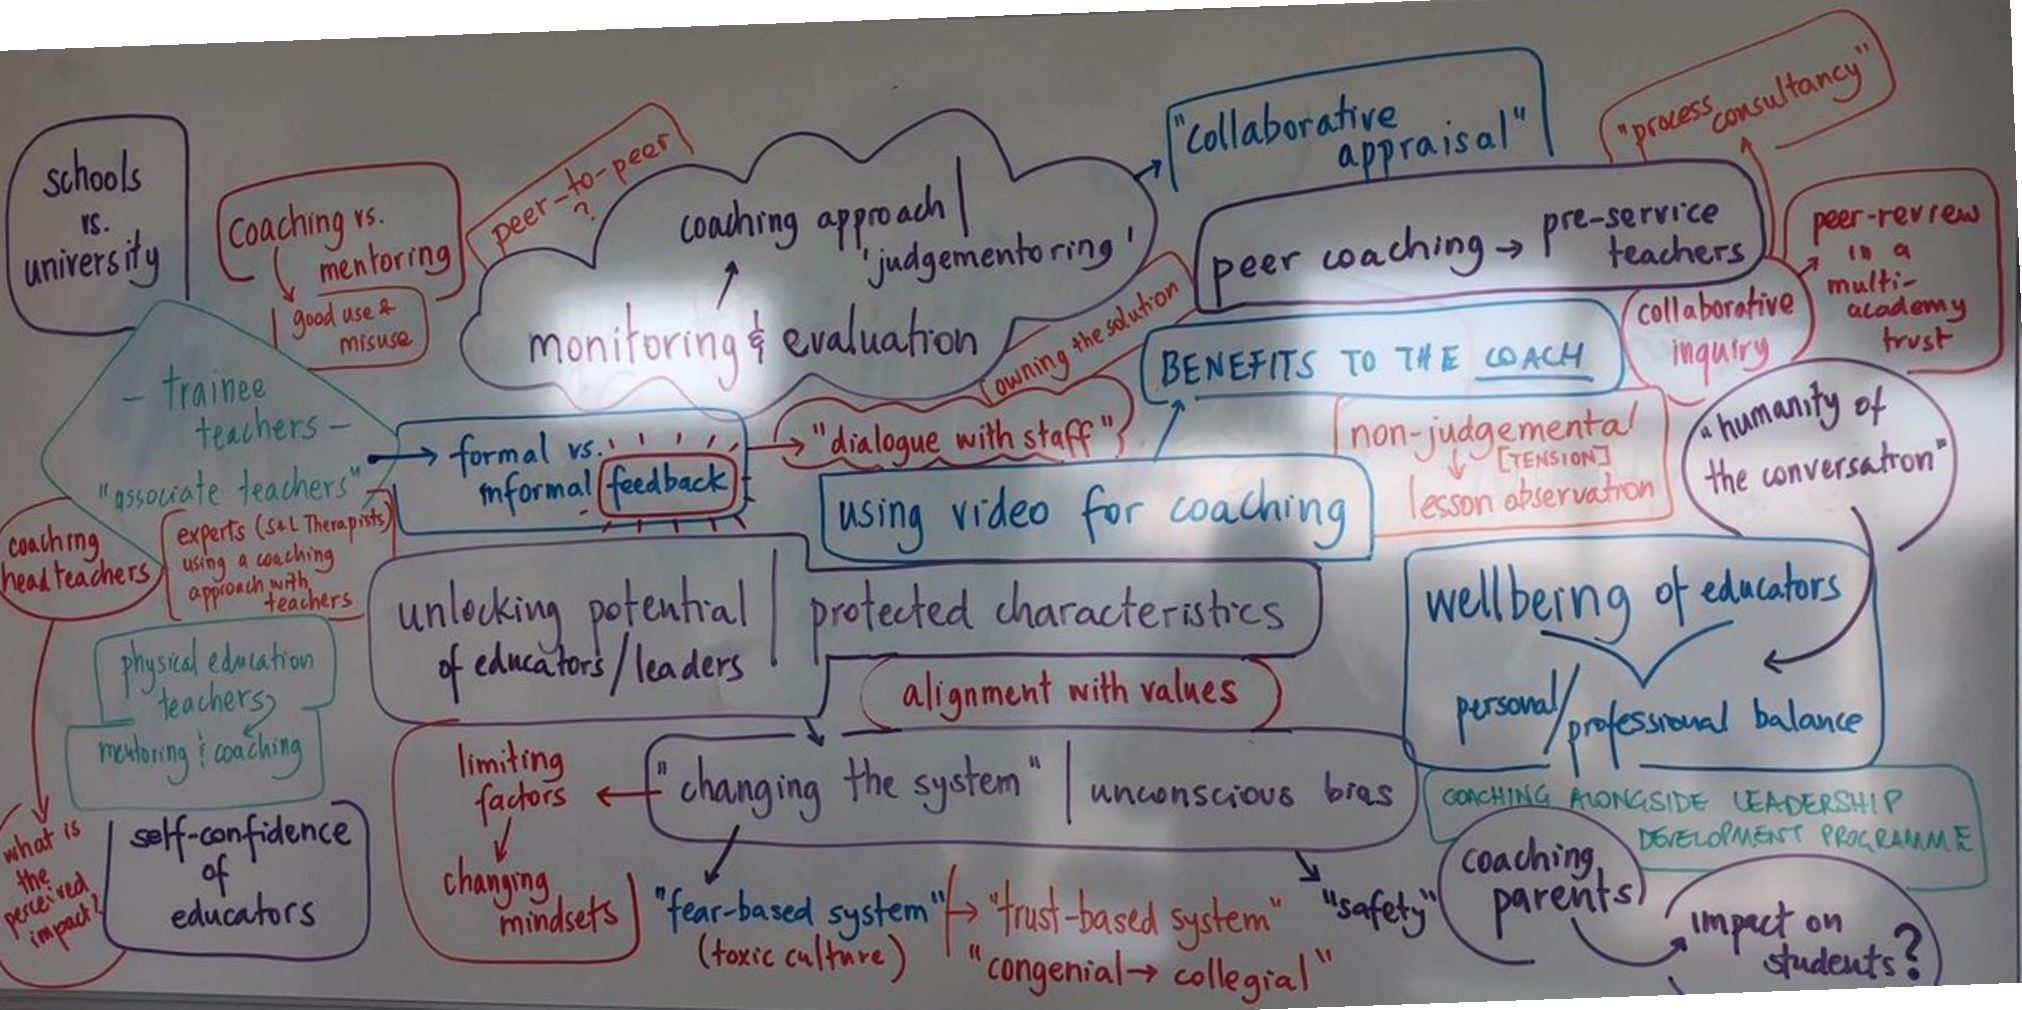 schools
vs.
university
coaching vs.
mentoring
good use &
misuse
peer-to-peer
?
coaching approach |
'judgementoring'
monitoring & evaluation
"collaborative
appraisal"
"process
consultancy"
peer coaching → pre-service
teachers
peer-review
in a
multi-
academy
trust
collaborative
inquiry
owning the solution
BENEFITS TO THE COACH
- trainee
teachers -
"associate teachers"
formal vs.
informal feedback
"dialogue with staff"
using video for coaching
non-judgemental
[TENSION]
lesson observation
"humanity of
the conversation"
coaching
head teachers
experts (S&L Therapists)
using a coaching
approach with
teachers
unlocking potential
of educators/leaders
protected characteristics
alignment with values
wellbeing of educators
personal/
professional balance
physical education
teachers
mentoring & coaching
limiting
factors
changing
mindsets
"changing the system" | unconscious bias
COACHING ALONGSIDE LEADERSHIP
DEVELOPMENT PROGRAMME
what is
the
perceived
impact?
self-confidence
of
educators
"fear-based system"
(toxic culture)
→ "trust-based system"
"congenial → collegial"
"safety"
coaching
parents
impact on
students?